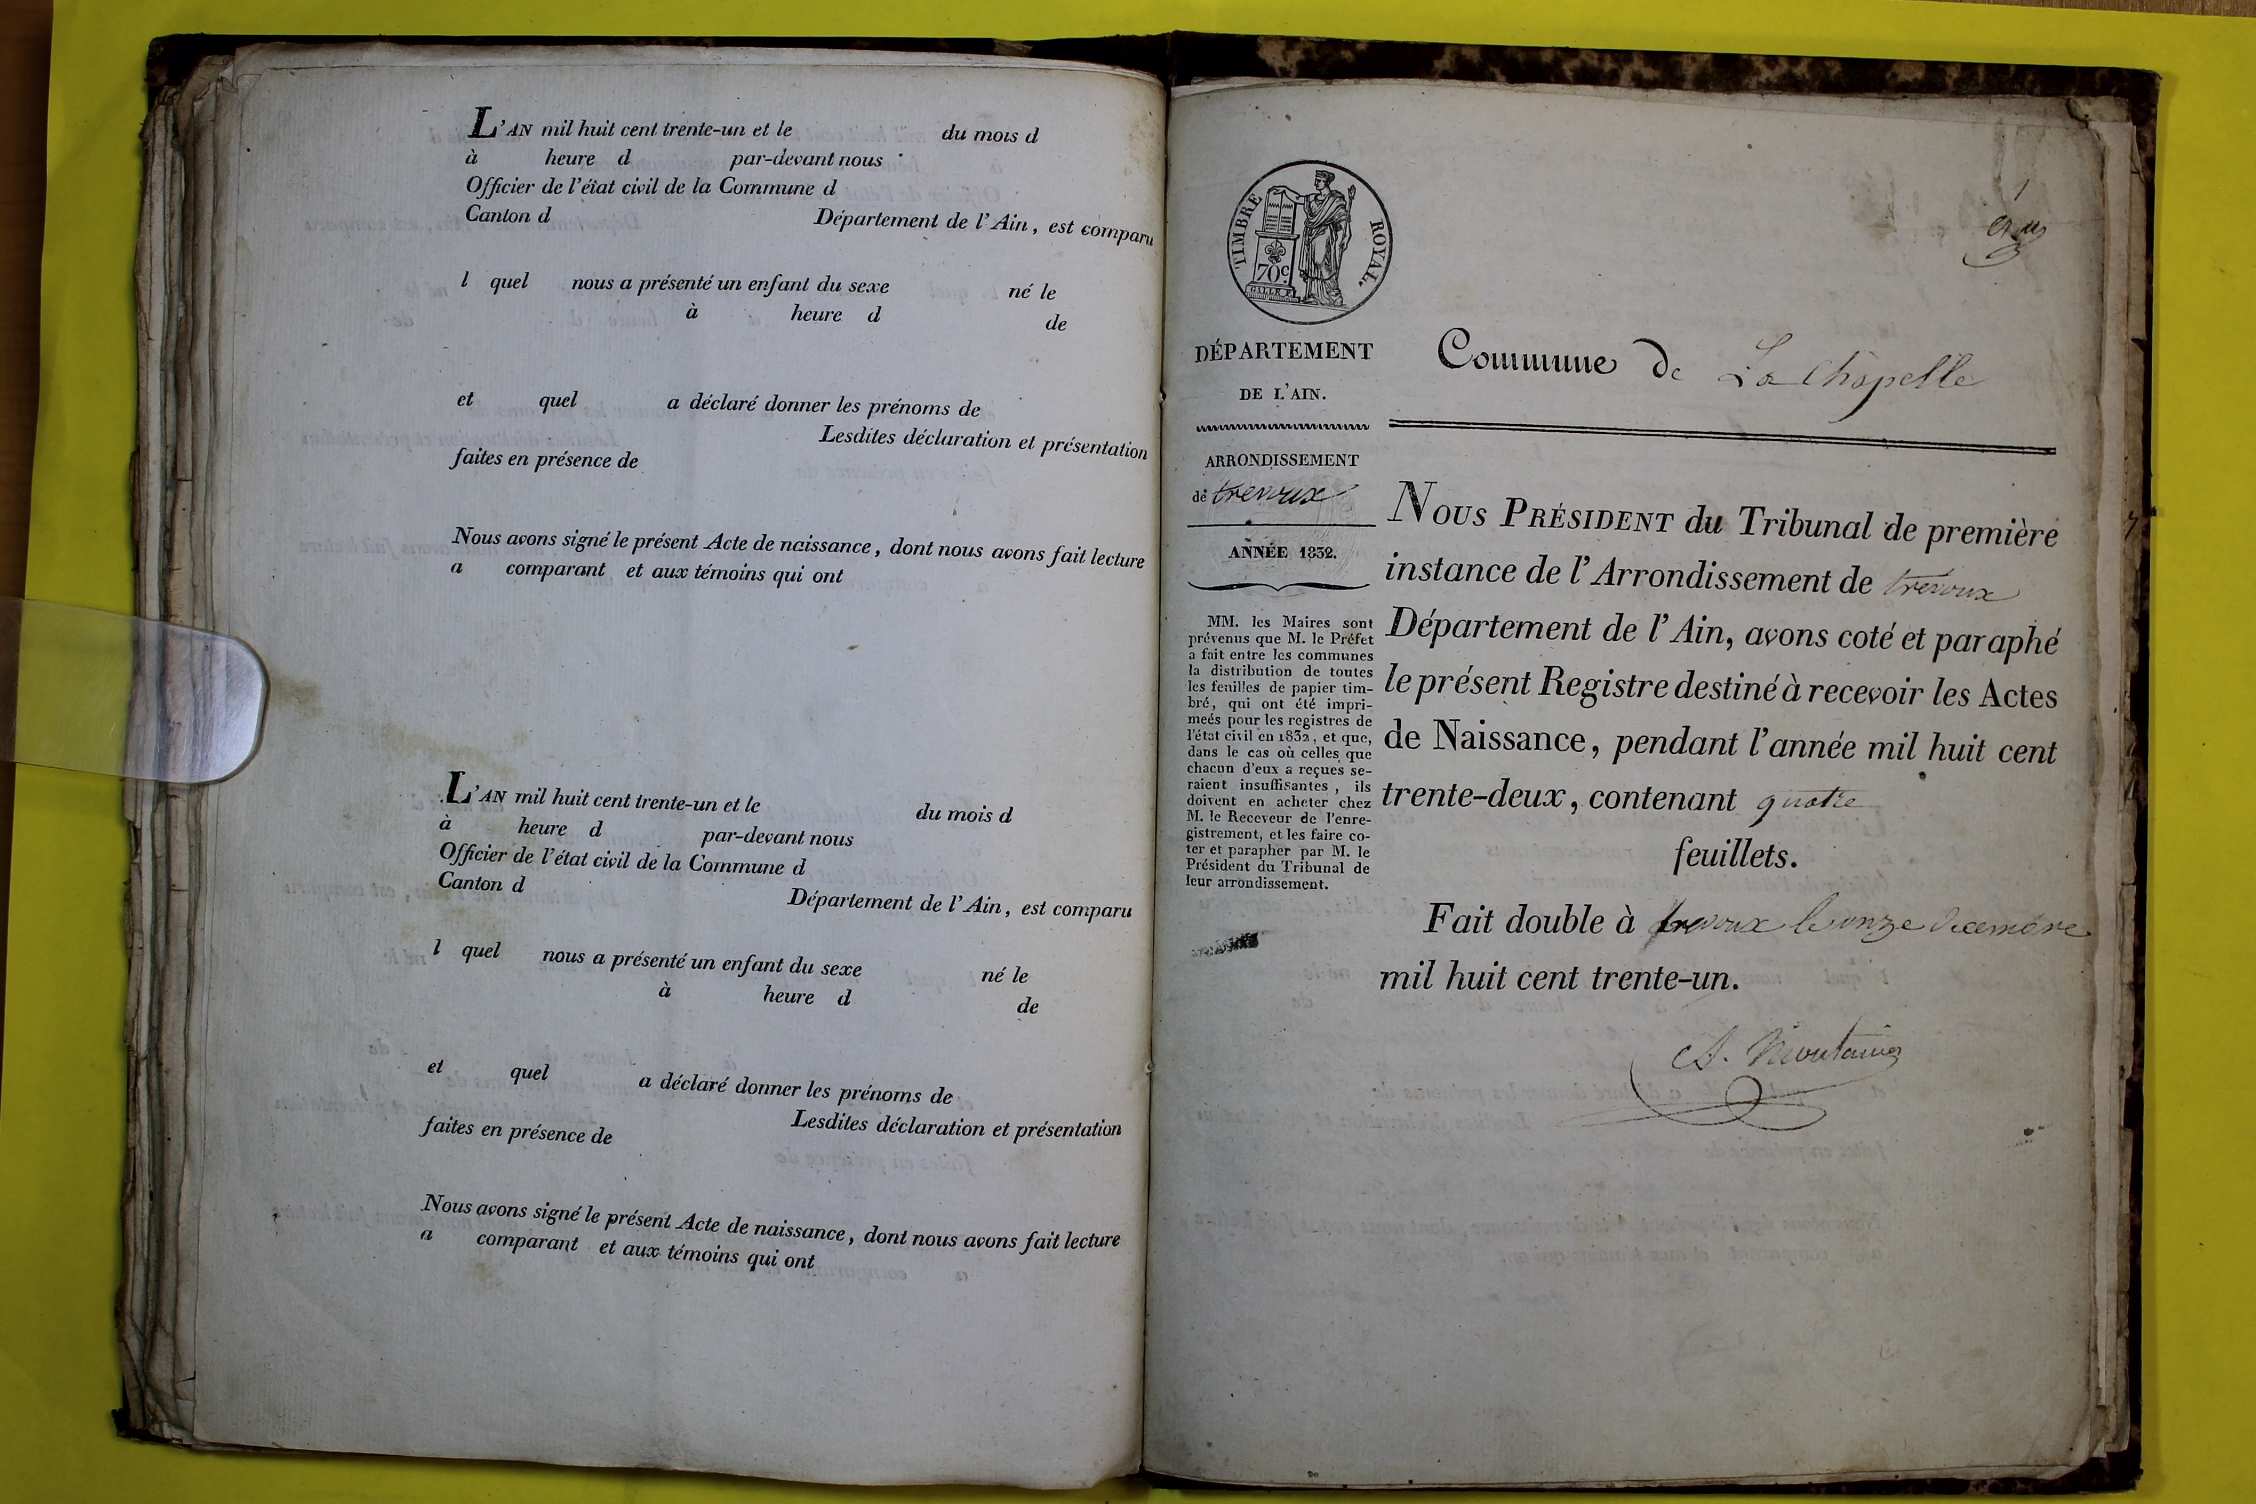 L'AN mil huit cent trente-un et le du mois d
à heure d par-devant nous
Officier de l'état civil de la Commune d
Canton d Département de l'Ain, est comparu
l quel nous a présenté un enfant du sexe né le
à heure d de
et quel a déclaré donner les prénoms de
Lesdites déclaration et présentation
faites en présence de
Nous avons signé le présent Acte de naissance, dont nous avons fait lecture
a comparant et aux témoins qui ont
L'AN mil huit cent trente-un et le du mois d
à heure d par-devant nous
Officier de l'état civil de la Commune d
Canton d Département de l'Ain, est comparu
l quel nous a présenté un enfant du sexe né le
à heure d de
et quel a déclaré donner les prénoms de
Lesdites déclaration et présentation
faites en présence de
Nous avons signé le présent Acte de naissance, dont nous avons fait lecture
a comparant et aux témoins qui ont
1
TIMBRE ROYAL.
70c
DÉPARTEMENT
DE L'AIN.
ARRONDISSEMENT
de trevoux
ANNÉE 1832.
MM. les Maires sont
prévenus que M. le Préfet
a fait entre les communes
la distribution de toutes
les feuilles de papier tim-
bré, qui ont été impri-
meés pour les registres de
l'état civil en 1832, et que,
dans le cas où celles que
chacun d'eux a reçues se-
raient insuffisantes, ils
doivent en acheter chez
M. le Receveur de l'enre-
gistrement, et les faire co-
ter et parapher par M. le
Président du Tribunal de
leur arrondissement.
Commune de La Chapelle
NOUS PRÉSIDENT du Tribunal de première
instance de l'Arrondissement de trevoux
Département de l'Ain, avons coté et paraphé
le présent Registre destiné à recevoir les Actes
de Naissance, pendant l'année mil huit cent
trente-deux, contenant quatre
feuillets.
Fait double à trevoux le onze decembre
mil huit cent trente-un.